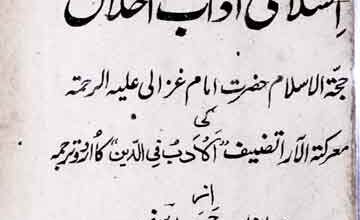 اسلامی آداب اخلاق
حجۃ الاسلام حضرت امام غزالی علیہ الرحمۃ
کی
معرکۃ الآرا تصنیف "اَلْاَدَبُ فِی الدِّین" کا اُردو ترجمہ
از